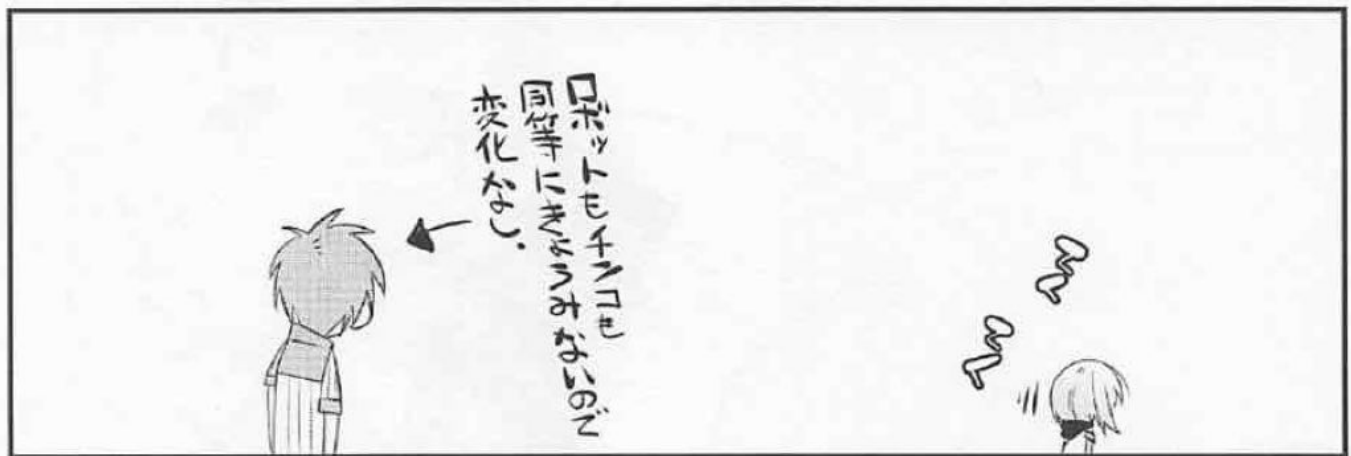 ロボットもチンコも
同等にきょうみないので
変化なし.